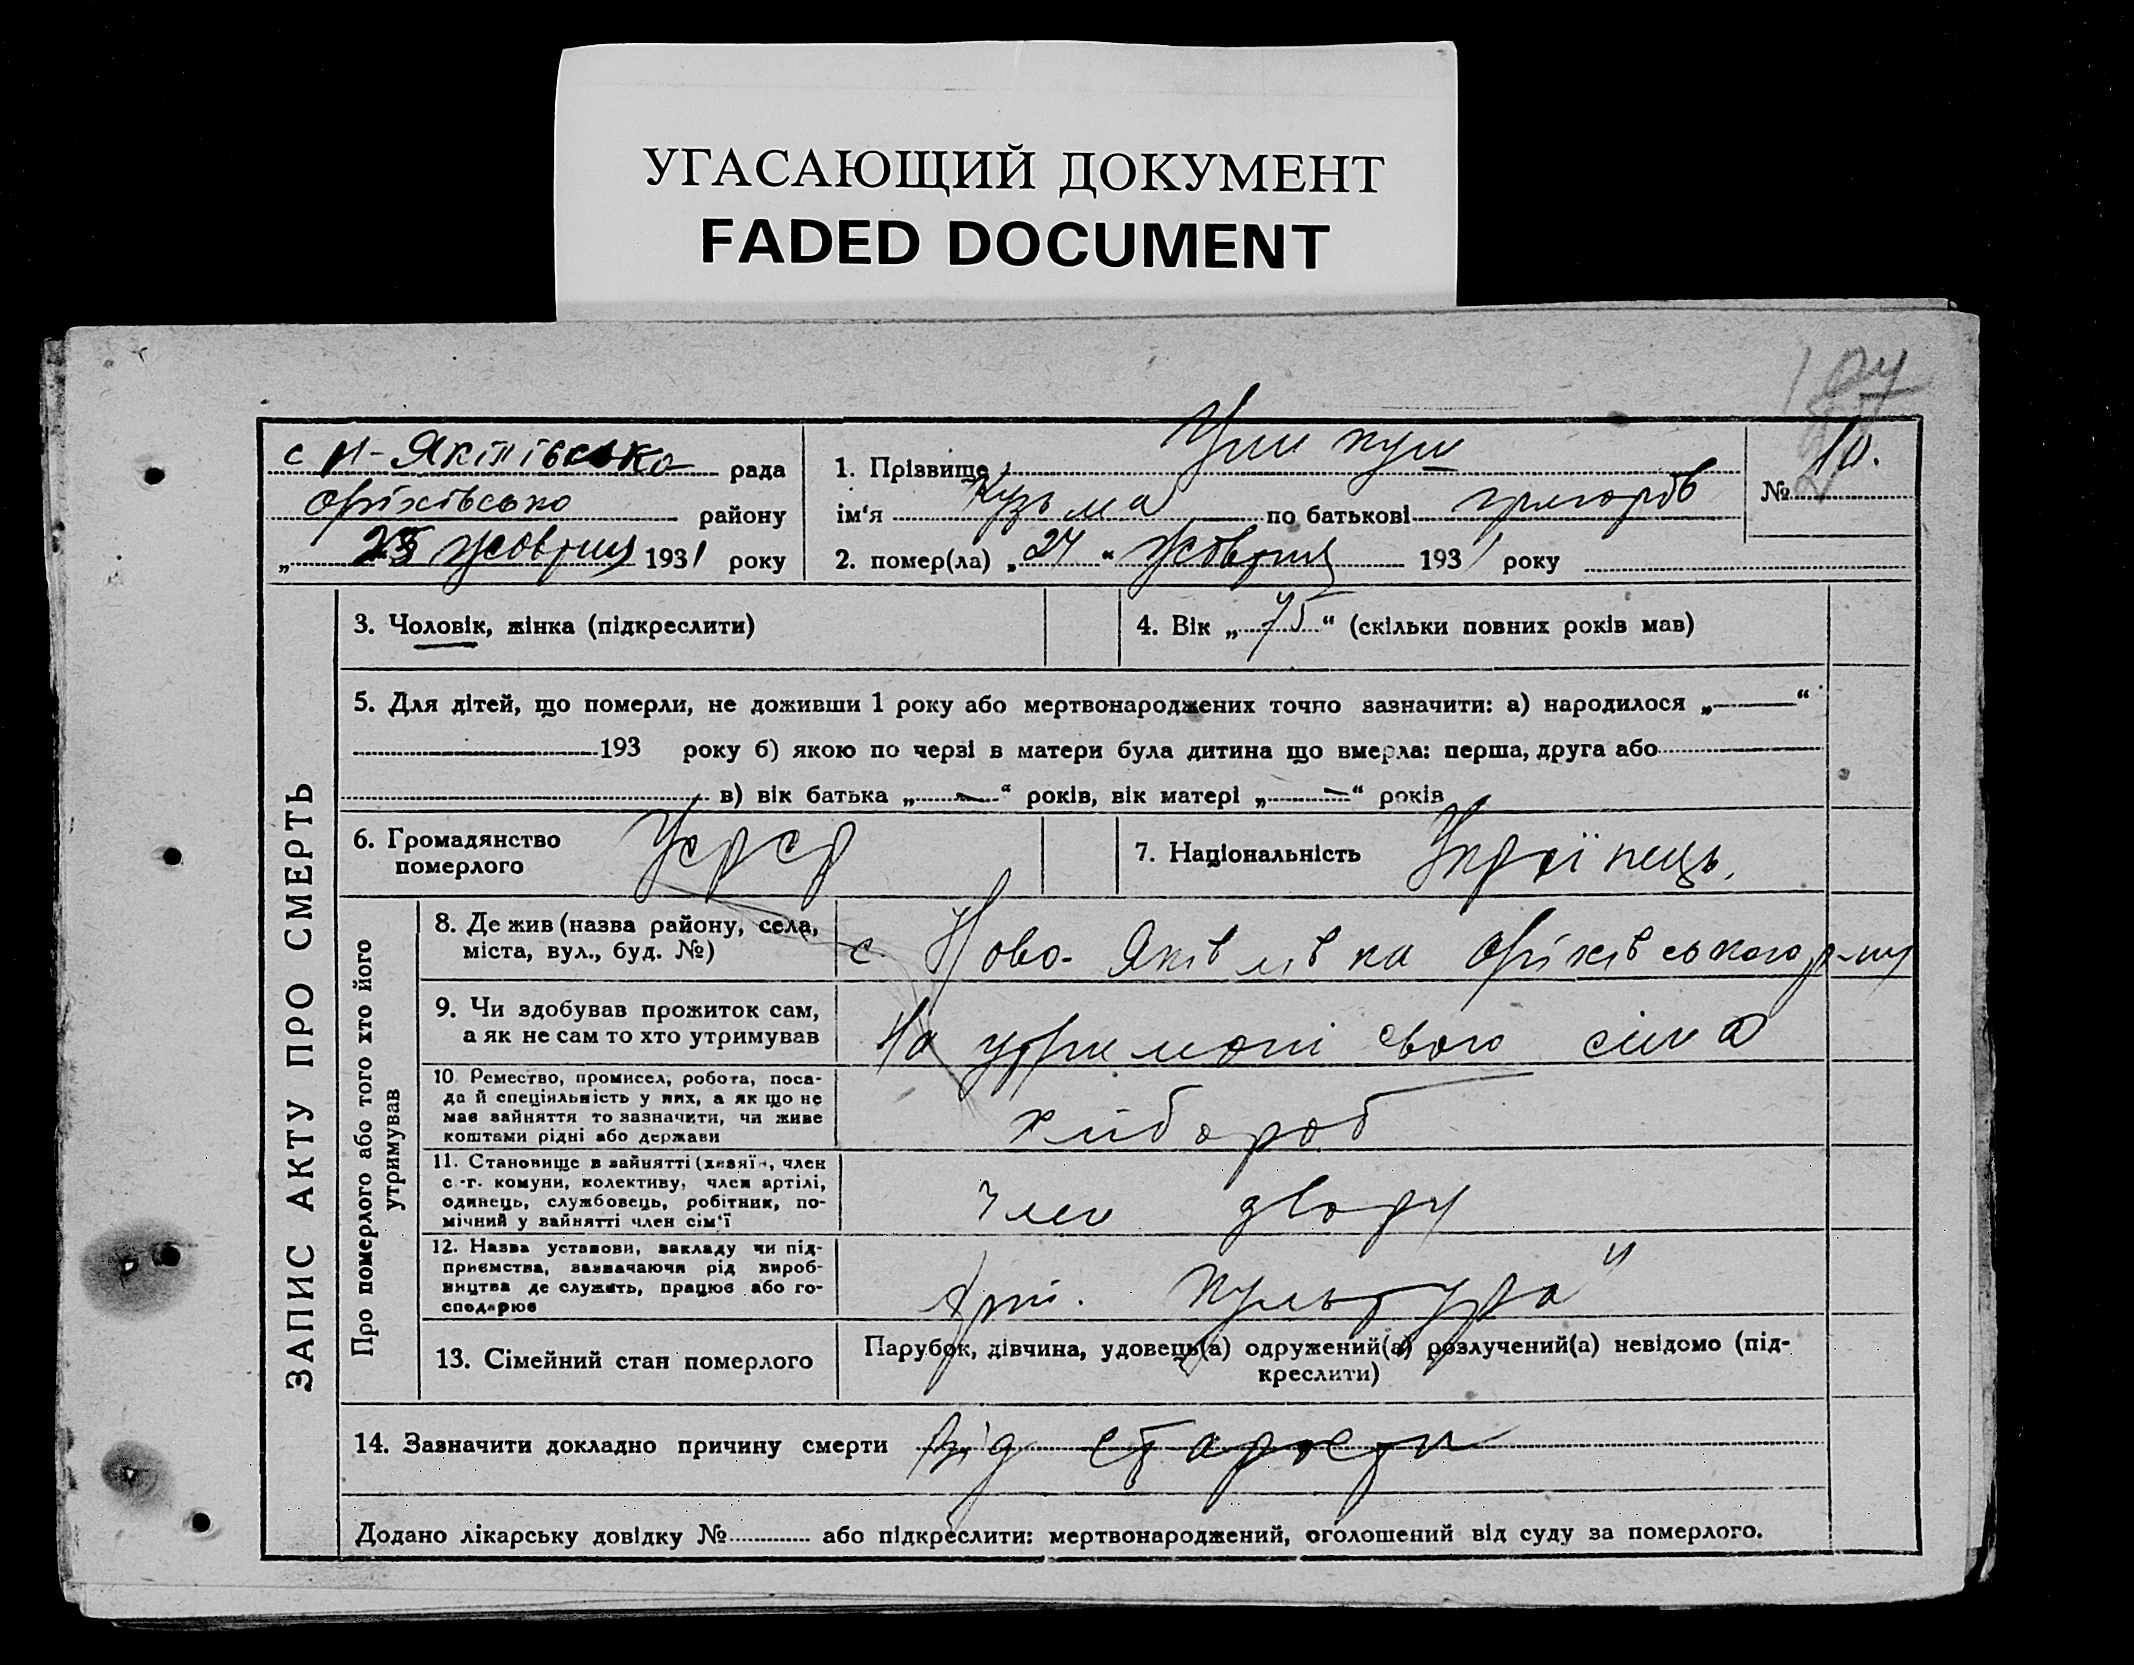 УГАСАЮЩИЙ ДОКУМЕНТ
FADED DOCUMENT
104
с Н-Яківсько рада
Оріхівсько району
„ 25 жовтня 1931 року
1. Прізвище
ім‘я Кузьма по батькові григоров
2. помер(ла) „24“ Жовтня 1931 року
№ 10.
ЗАПИС АКТУ ПРО СМЕРТЬ
3. Чоловік, жінка (підкреслити)
4. Вік „75“ (скільки повних років мав)
5. Для дітей, що померли, не доживши 1 року або мертвонароджених точно зазначити: а) народилося „—“
193 року б) якою по черзі в матери була дитина що вмерла: перша, друга або
в) вік батька „—“ років, вік матері „—“ років
6. Громадянство
померлого
Усрср
7. Національність Українець.
Про померлого або того хто його
утримував
8. Де жив (назва району, села,
міста, вул., буд. №)
с. Ново-Яківлівка Оріхівського р-ну
9. Чи здобував прожиток сам,
а як не сам то хто утримував
На утримані свого сина
10. Ремество, промисел, робота, поса-
да й спеціяльність у них, а як що не
має зайняття то зазначити, чи живе
коштами рідні або держави
хлібороб
11. Становище в зайнятті (хазяїн, член
с.-г. комуни, колективу, член артілі,
одинець, службовець, робітник, по-
мічний у зайнятті член сім‘ї
член двору
12. Назва установи, закладу чи під-
приємства, зазначаючи рід вироб-
ництва де служить, працює або го-
сподарює
Арт. Культура"
13. Сімейний стан померлого
Парубок, дівчина, удовець(а) одружений(а) розлучений(а) невідомо (під-
креслити)
14. Зазначити докладно причину смерти Від старости
Додано лікарську довідку № або підкреслити: мертвонароджений, оголошений від суду за померлого.